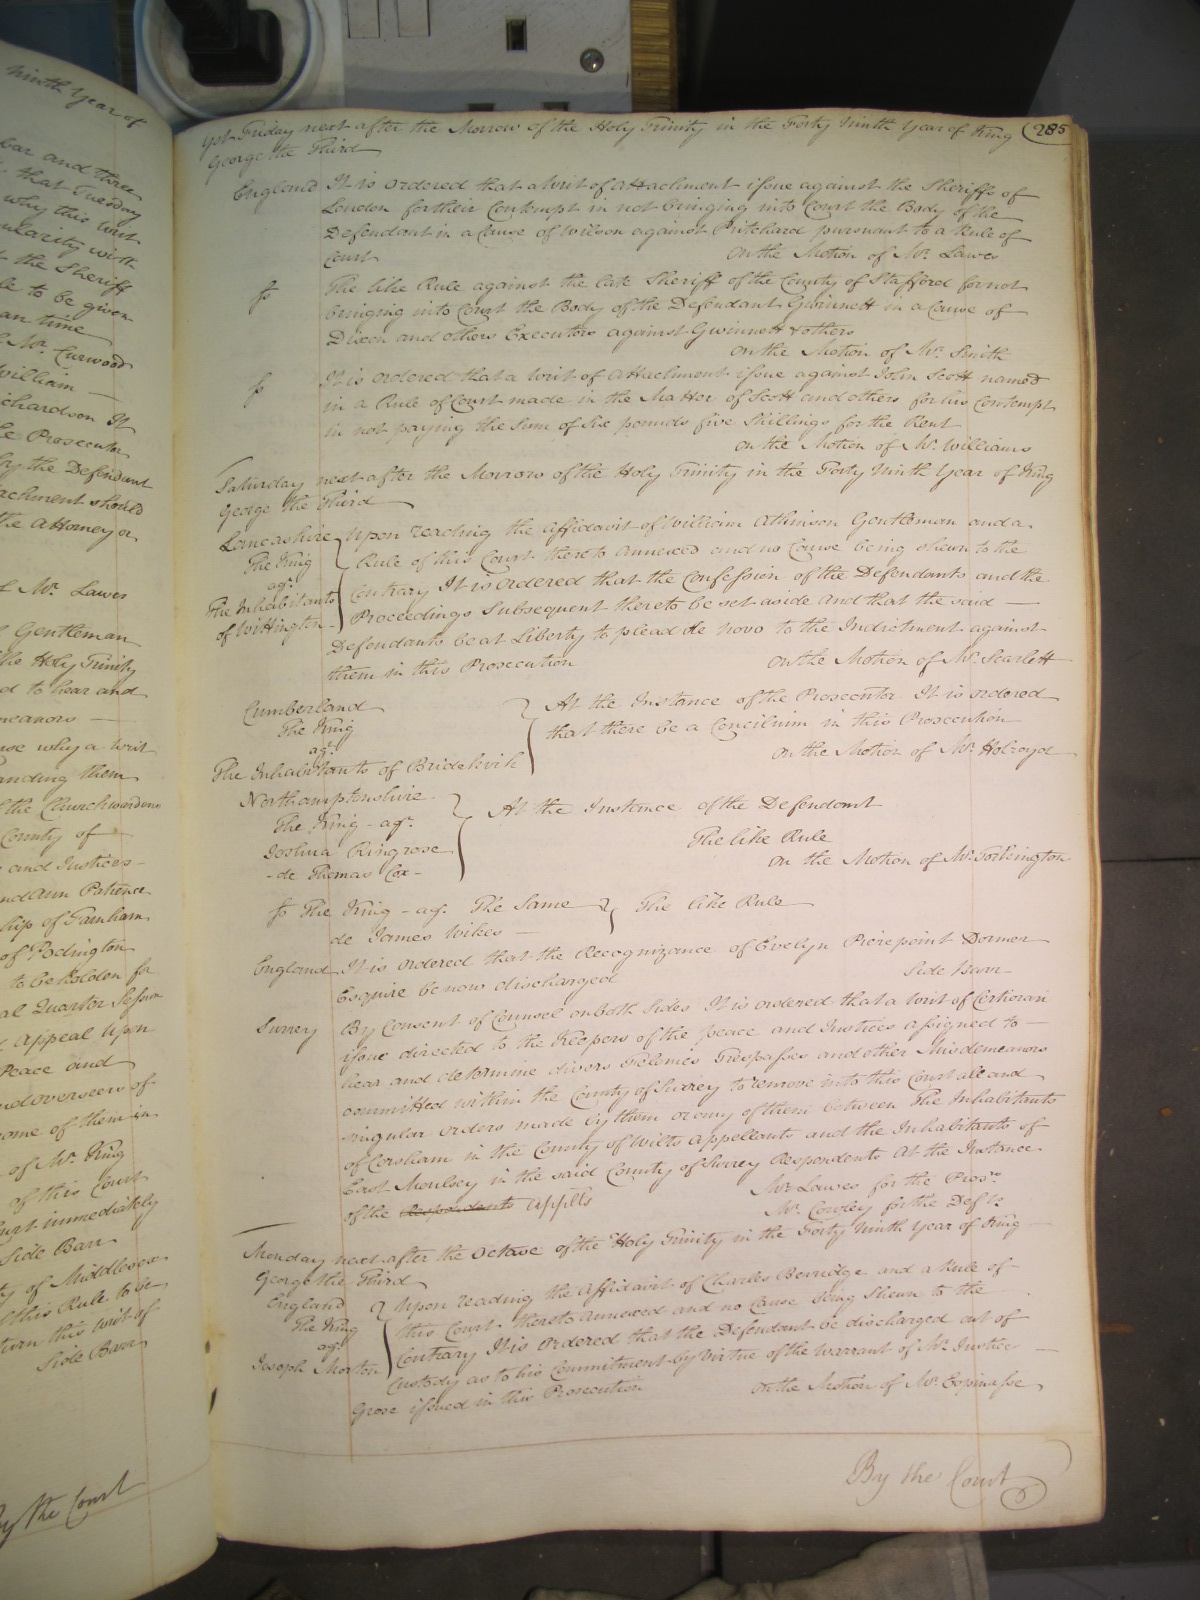 Ninth Year of
bar and three
that Tuesday
why this writ
ularity with
the Sheriff
le to be given
an time
Mr. Curwood
William
ichardson It
he Prosecutor
by the Defendant
achment should
the Attorney or
f Mr. Lawes
Gentleman
the Holy Trinity
d to hear and
meanors —
use why a writ
anding them
f the Churchwardens
County of
and Justices
nd Ann Patience
ship of Farnham
of Podington
to be holden for
al Quarter Session
Appeal upon
Peace and
nd overseers of
some of them in
of Mr. King
of this Court
Court immediately
Side Barr
ty of Middlesex
f this Rule to be
turn this writ of
Side Barr
By the Court
285
Yet Friday next after the Morrow of the Holy Trinity in the Forty Ninth Year of King
George the Third
England It is ordered that a Writ of Attachment issue against the Sheriffs of
London for their Contempt in not bringing into Court the Body of the
Defendant in a Cause of Wilson against Pritchard pursuant to a Rule of
Court on the Motion of Mr. Lawes
The like Rule against the late Sheriff of the County of Stafford for not
bringing into Court the Body of the Defendant Gwinnett in a Cause of
Dixon and others Executors against Gwinnett & others
on the Motion of Mr. Smith
It is ordered that a Writ of Attachment issue against John Scott named
in a Rule of Court made in the Matter of Scott and others for his Contempt
in not paying the Sum of Six pounds five Shillings for the Rent
on the Motion of Mr. Williams
Saturday next after the Morrow of the Holy Trinity in the Forty Ninth Year of King
George the Third
Lancashire Upon reading the Affidavit of William Atkinson Gentleman and a
The King Rule of this Court thereto annexed and no Cause being shewn to the
agt. Contrary It is ordered that the Confession of the Defendants and the
The Inhabitants Proceedings Subsequent thereto be set aside and that the said —
of Wittington Defendants be at Liberty to plead de novo to the Indictment against
them in this Prosecution on the Motion of Mr. Scarlett
Cumberland At the Instance of the Prosecutor It is ordered
The King that there be a Concilium in this Prosecution
agt. on the Motion of Mr. Holroyd
The Inhabitants of Bridekirk
Northamptonshire At the Instance of the Defendant
The King - agt. The like Rule
Joshua Ringrose on the Motion of Mr. Torkington
- de Thomas Cox -
The King - agt. The Same The like Rule
de James Wikes —
England It is ordered that the Recognizance of Evelyn Pierepoint Dormer
Esquire be now discharged Side Barr
Surrey By Consent of Counsel on both Sides It is ordered that a Writ of Certiorari
issue directed to the Keepers of the peace and Justices assigned to —
hear and determine divers Felonies Trespasses and other Misdemeanors
committed within the County of Surrey to remove into this Court all and
singular orders made by them or any of them between The Inhabitants
of Corsham in the County of Wilts Appellants and the Inhabitants of
East Moulsey in the said County of Surrey Respondents At the Instance
of the Respondents Applts Mr. Lawes for the Prosr.
Mr. Cowley for the Defts.
Monday next after the Octave of the Holy Trinity in the Forty Ninth Year of King
George the Third
England Upon reading the Affidavit of Charles Berridge and a Rule of
The King this Court thereto Annexed and no Cause being Shewn to the
agt. Contrary It is ordered that the Defendant be discharged out of
Joseph Morton Custody as to his Commitment by Virtue of the Warrant of Mr. Justice
Grose issued in this Prosecution on the Motion of Mr. Espinasse
By the Court